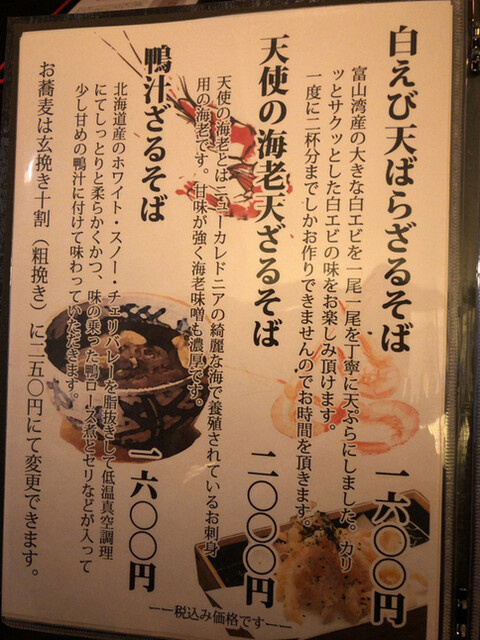 白えび天ばらざるそば 一六〇〇円
富山湾産の大きな白エビを一尾一尾を丁寧に天ぷらにしました。カリ
ッとサクッとした白エビの味をお楽しみ頂けます。
一度に二杯分までしかお作りできませんのでお時間を頂きます。
天使の海老天ざるそば 二〇〇〇円
天使の海老とはニューカレドニアの綺麗な海で養殖されているお刺身
用の海老です。甘味が強く海老味噌も濃厚です。
鴨汁ざるそば 一六〇〇円
北海道産のホワイト・スノー・チェリバレーを脂抜きして低温真空調理
にてしっとりと柔らかくかつ、味の乗った鴨ロース煮とセリなどが入って
少し甘めの鴨汁に付けて味わっていただきます。
お蕎麦は玄挽き十割（粗挽き）に二五〇円にて変更できます。
ーー税込み価格ですーー